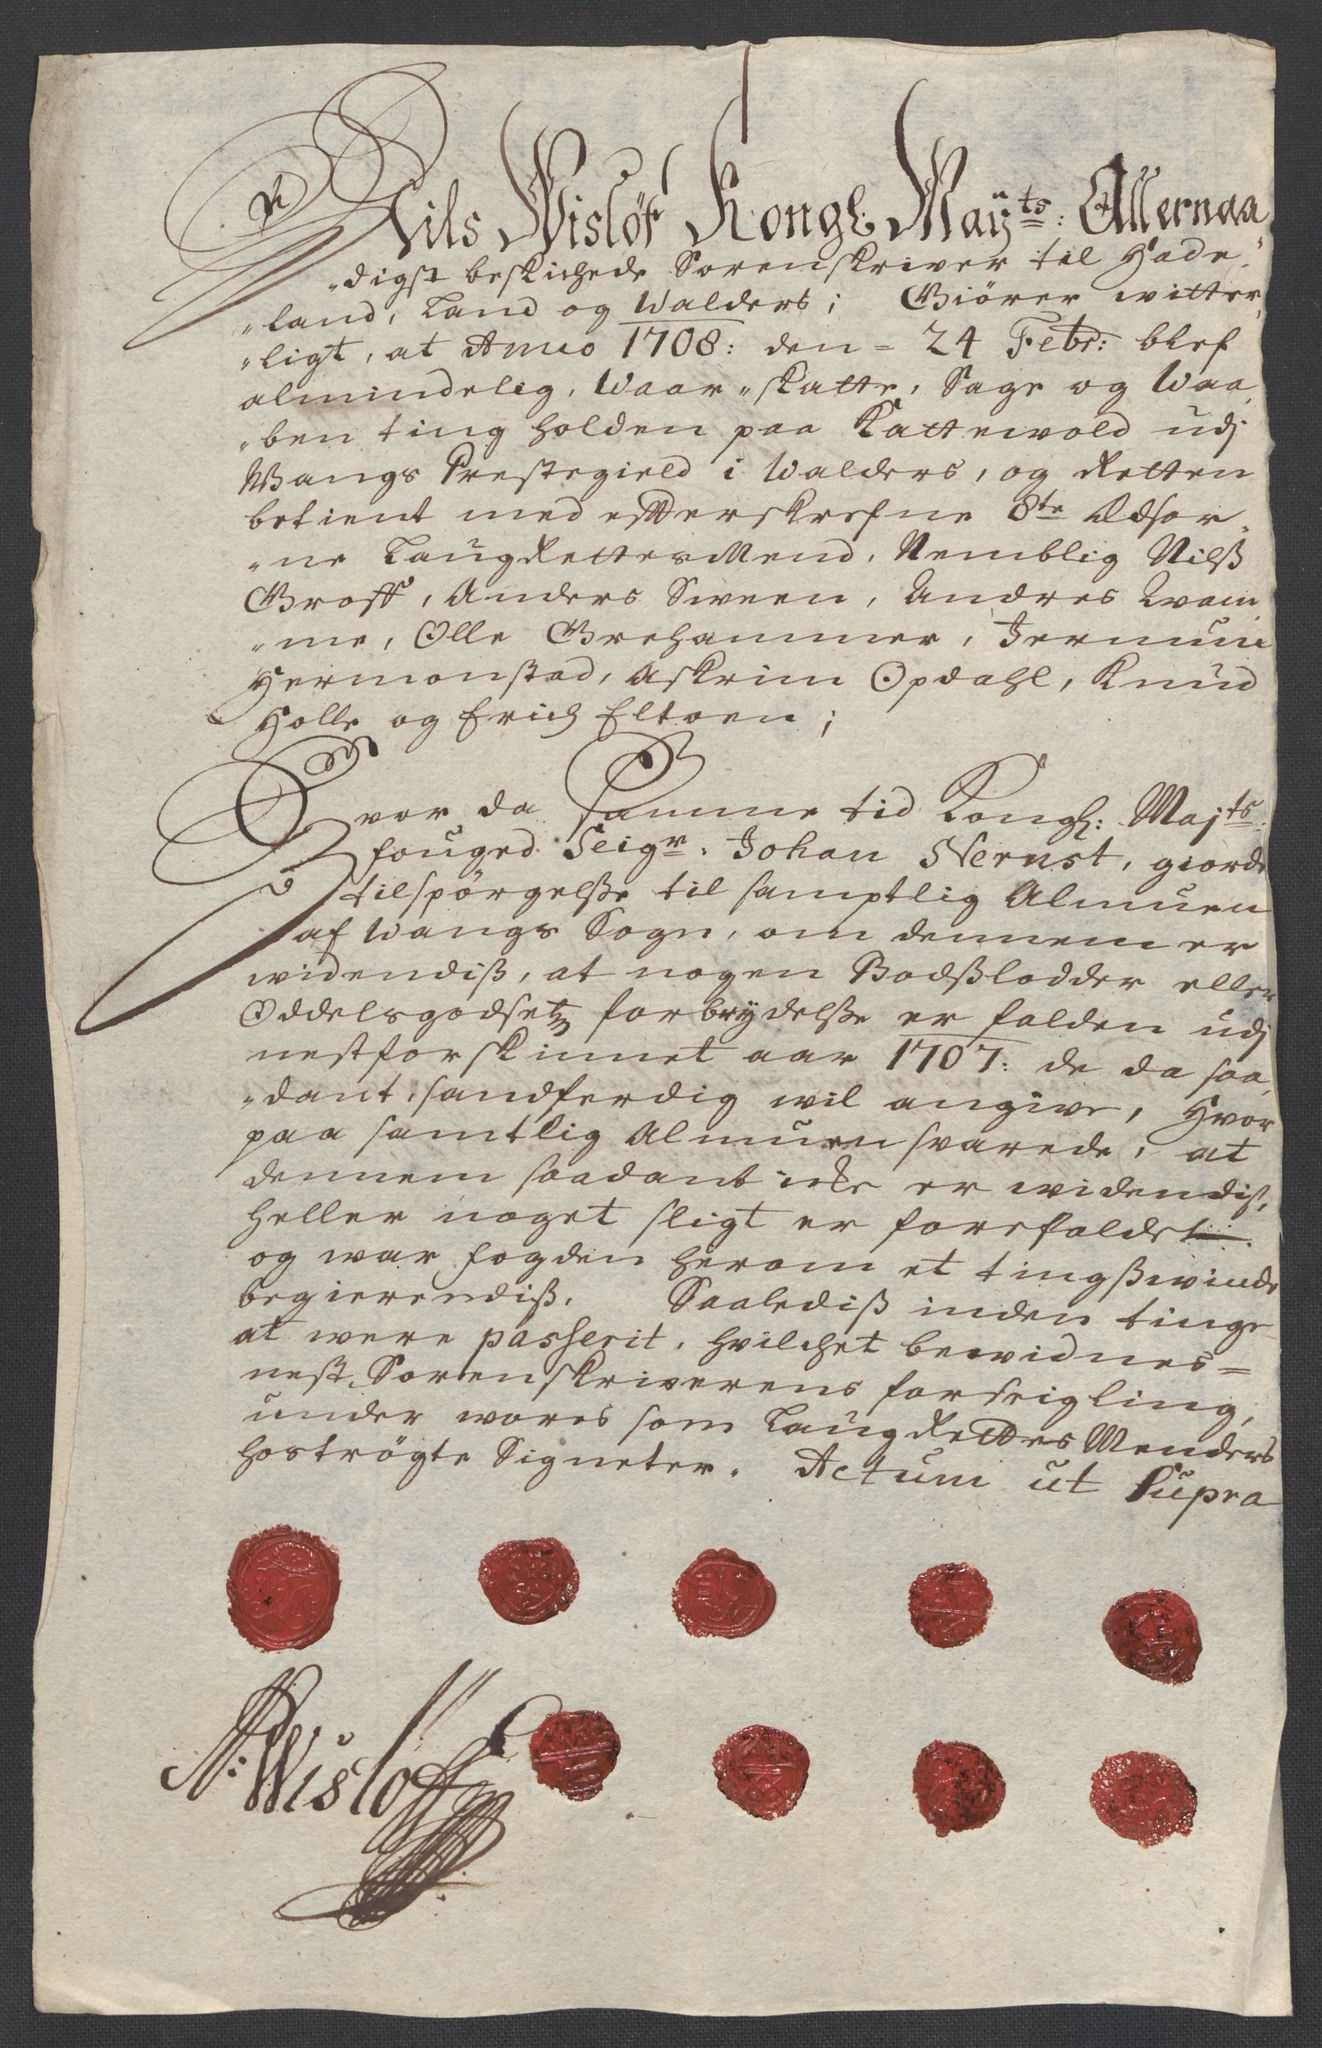 Nils Wisløf Kongl: Maÿts: Allernaa
"digst beskichede Sorenskriver til Hade"
"land, Land og Walders; Giörer witter"
"ligt, at Anno 1708: den = 24 Febr: blef
almindelig, Waar "skatte, Sage og Waa"
"ben ting holden paa Kattevold udj
Wangs Prestegield i Walders, og Retten
betient med effterskrefne 8te Edsor"
"ne LaugRettesMend, Nemblig Nilß
Groff, Anders Sween, Andres Qvam
"me, Olle Grehammer, Jermun
Hermonstad, Askrim Opdahl, Knud
Holle og Erich Eltoen;
Hvor da Samme tid Kongl: Majts:
fouged Seigr. Johan Nernst, giorde
tilspörgelße til samptlig Almuen
af Wangs Sogn, om dennem er
widendiß, at nogen Bodßlodder eller
Oddelsgodsetz forbrydelße er falden udj
nestforskinnet aar 1707: de da saa,
"dant sandferdig wil angive, Hvor
paa samtlig Almuen svarede, at
dennem saadant icke er widendiß,
heller noget sligt er forefaldet
og war fogden herom et tingßwinde
begierendiß. Saalediß inden tinge
at were passerit, hvilchet bewidnes=
nest Sorenskriverens forseigling,
under wores som LaugRettes Menders
hoströgte Signeter. Actum ut Supra
N: Wisloff